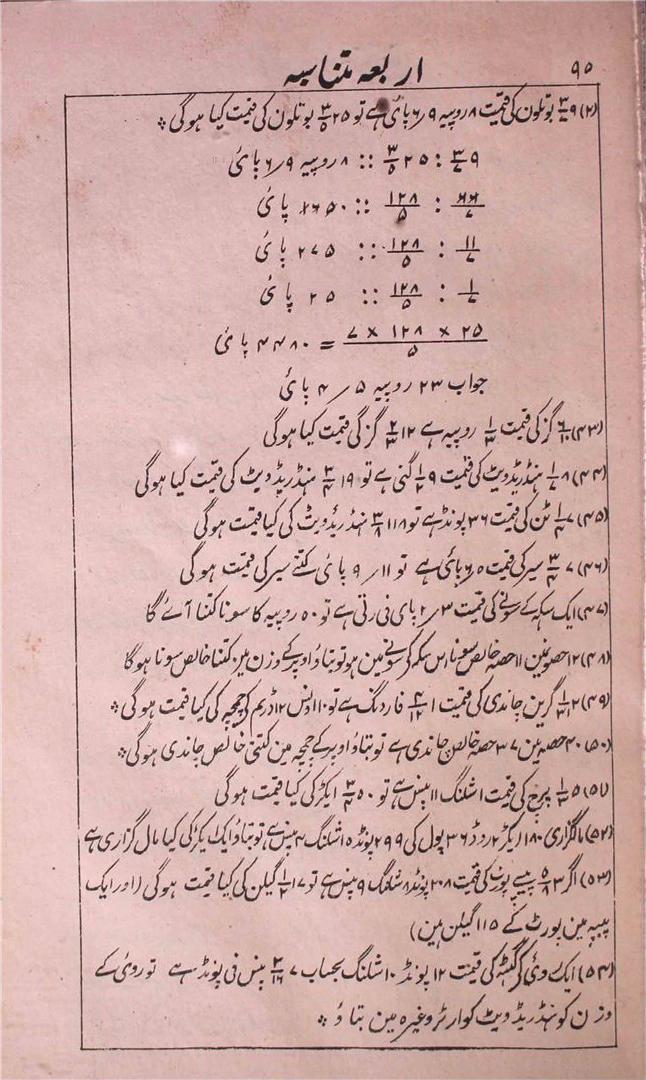 ۹۵ اربعہ متناسبہ
(۲) ۹ ۳/۷ بوتلون کی قیمت ۸ روپیہ ۶/۹ پائی ہے تو ۲۵ ۳/۵ بوتلون کی قیمت کیا ہوگی
۹ ۳/۷ : ۲۵ ۳/۵ :: ۸ روپیہ ۶/۹ پائی
۶۶/۷ : ۱۲۸/۵ :: ۱۶۵۰ پائی
۱۱/۷ : ۱۲۸/۵ :: ۲۷۵ پائی
۱/۷ : ۱۲۸/۵ :: ۲۵ پائی
۷ × ۱۲۸ × ۲۵ / ۵ = ۴۴۸۰ پائی
جواب ۲۳ روپیہ ۵/۴ پائی
(۴۳) ۶/۱۰ گز کی قیمت ۱/۳ روپیہ ہے ۱۲ ۲/۳ گز کی قیمت کیا ہوگی
(۴۴) ۸ ۱/۷ ہنڈریڈویٹ کی قیمت ۹ ۱/۲ گنی ہے تو ۱۹ ۳/۴ ہنڈریڈویٹ کی قیمت کیا ہوگی
(۴۵) ۷ ۱/۴ ٹن کی قیمت ۳۶ پونڈ ہے تو ۱۱۸ ۳/۸ ہنڈریڈویٹ کی کیا قیمت ہوگی
(۴۶) ۷ ۳/۴ سیر کی قیمت ۶/۵ پائی ہے تو ۱۱/۹ پائی کتنے سیر کی قیمت ہوگی
(۴۷) ایک سکہ کے سونے کی قیمت ۲/۳ پائی فی رتی ہے تو ۵۰ روپیہ کا سونا کتنا آئے گا
(۴۸) ۱۲ حصونمین ۱۱ حصہ خالص سونا اس سکہ کے سونے مین ہو تو بتاؤ اوپر کے وزن مین کتنا خالص سونا ہوگا
(۴۹) ۲ ۱/۳ گرین چاندی کی قیمت ۱ ۴/۱۲ فاردنگ ہے تو ۱۱ اونس ۱۲ ڈریم کے چمچہ کی کیا قیمت ہوگی
(۵۰) ۴۰ حصہ مین ۳۷ حصہ خالص چاندی ہے تو بتاؤ اوپر کے چمچہ مین کتنی خالص چاندی ہوگی
(۵۱) ۵ ۱/۳ پرچ کی قیمت ۱ شلنگ ۱۱ پنس ہے تو ۵۰ ۳/۴ ایکڑ کی کیا قیمت ہوگی
(۵۲) مالگزاری ۱۸۰ ایکڑ ۲ روڈ ۳۶ پول کی ۲۹۹ پونڈ ۱۵ شلنگ ۴ پنس ہے تو بتاؤ ایک ایکڑ کی کیا مالگزاری ہے
(۵۳) اگر ۳ ۵/۸ پیپے پورٹ کی قیمت ۳۰۸ پونڈ ۸ شلنگ ۹ پنس ہے تو ۱۷ ۱/۲ گیلن کی کیا قیمت ہوگی (اور ایک
پیپہ مین پورٹ کے ۱۱۵ گیلن ہین)
(۵۴) ایک روئی کے گٹھہ کی قیمت ۱۲ پونڈ ۱۰ شلنگ بحساب ۷ ۳/۱۶ پنس فی پونڈ ہے تو روئی کے
وزن کو ہنڈریڈویٹ کوارٹر وغیرہ مین بتاؤ